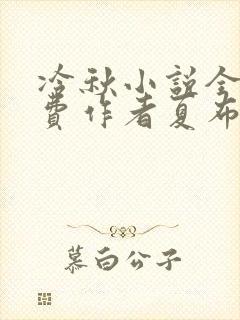 冷秋小説全
費作者夏布
慕白公子